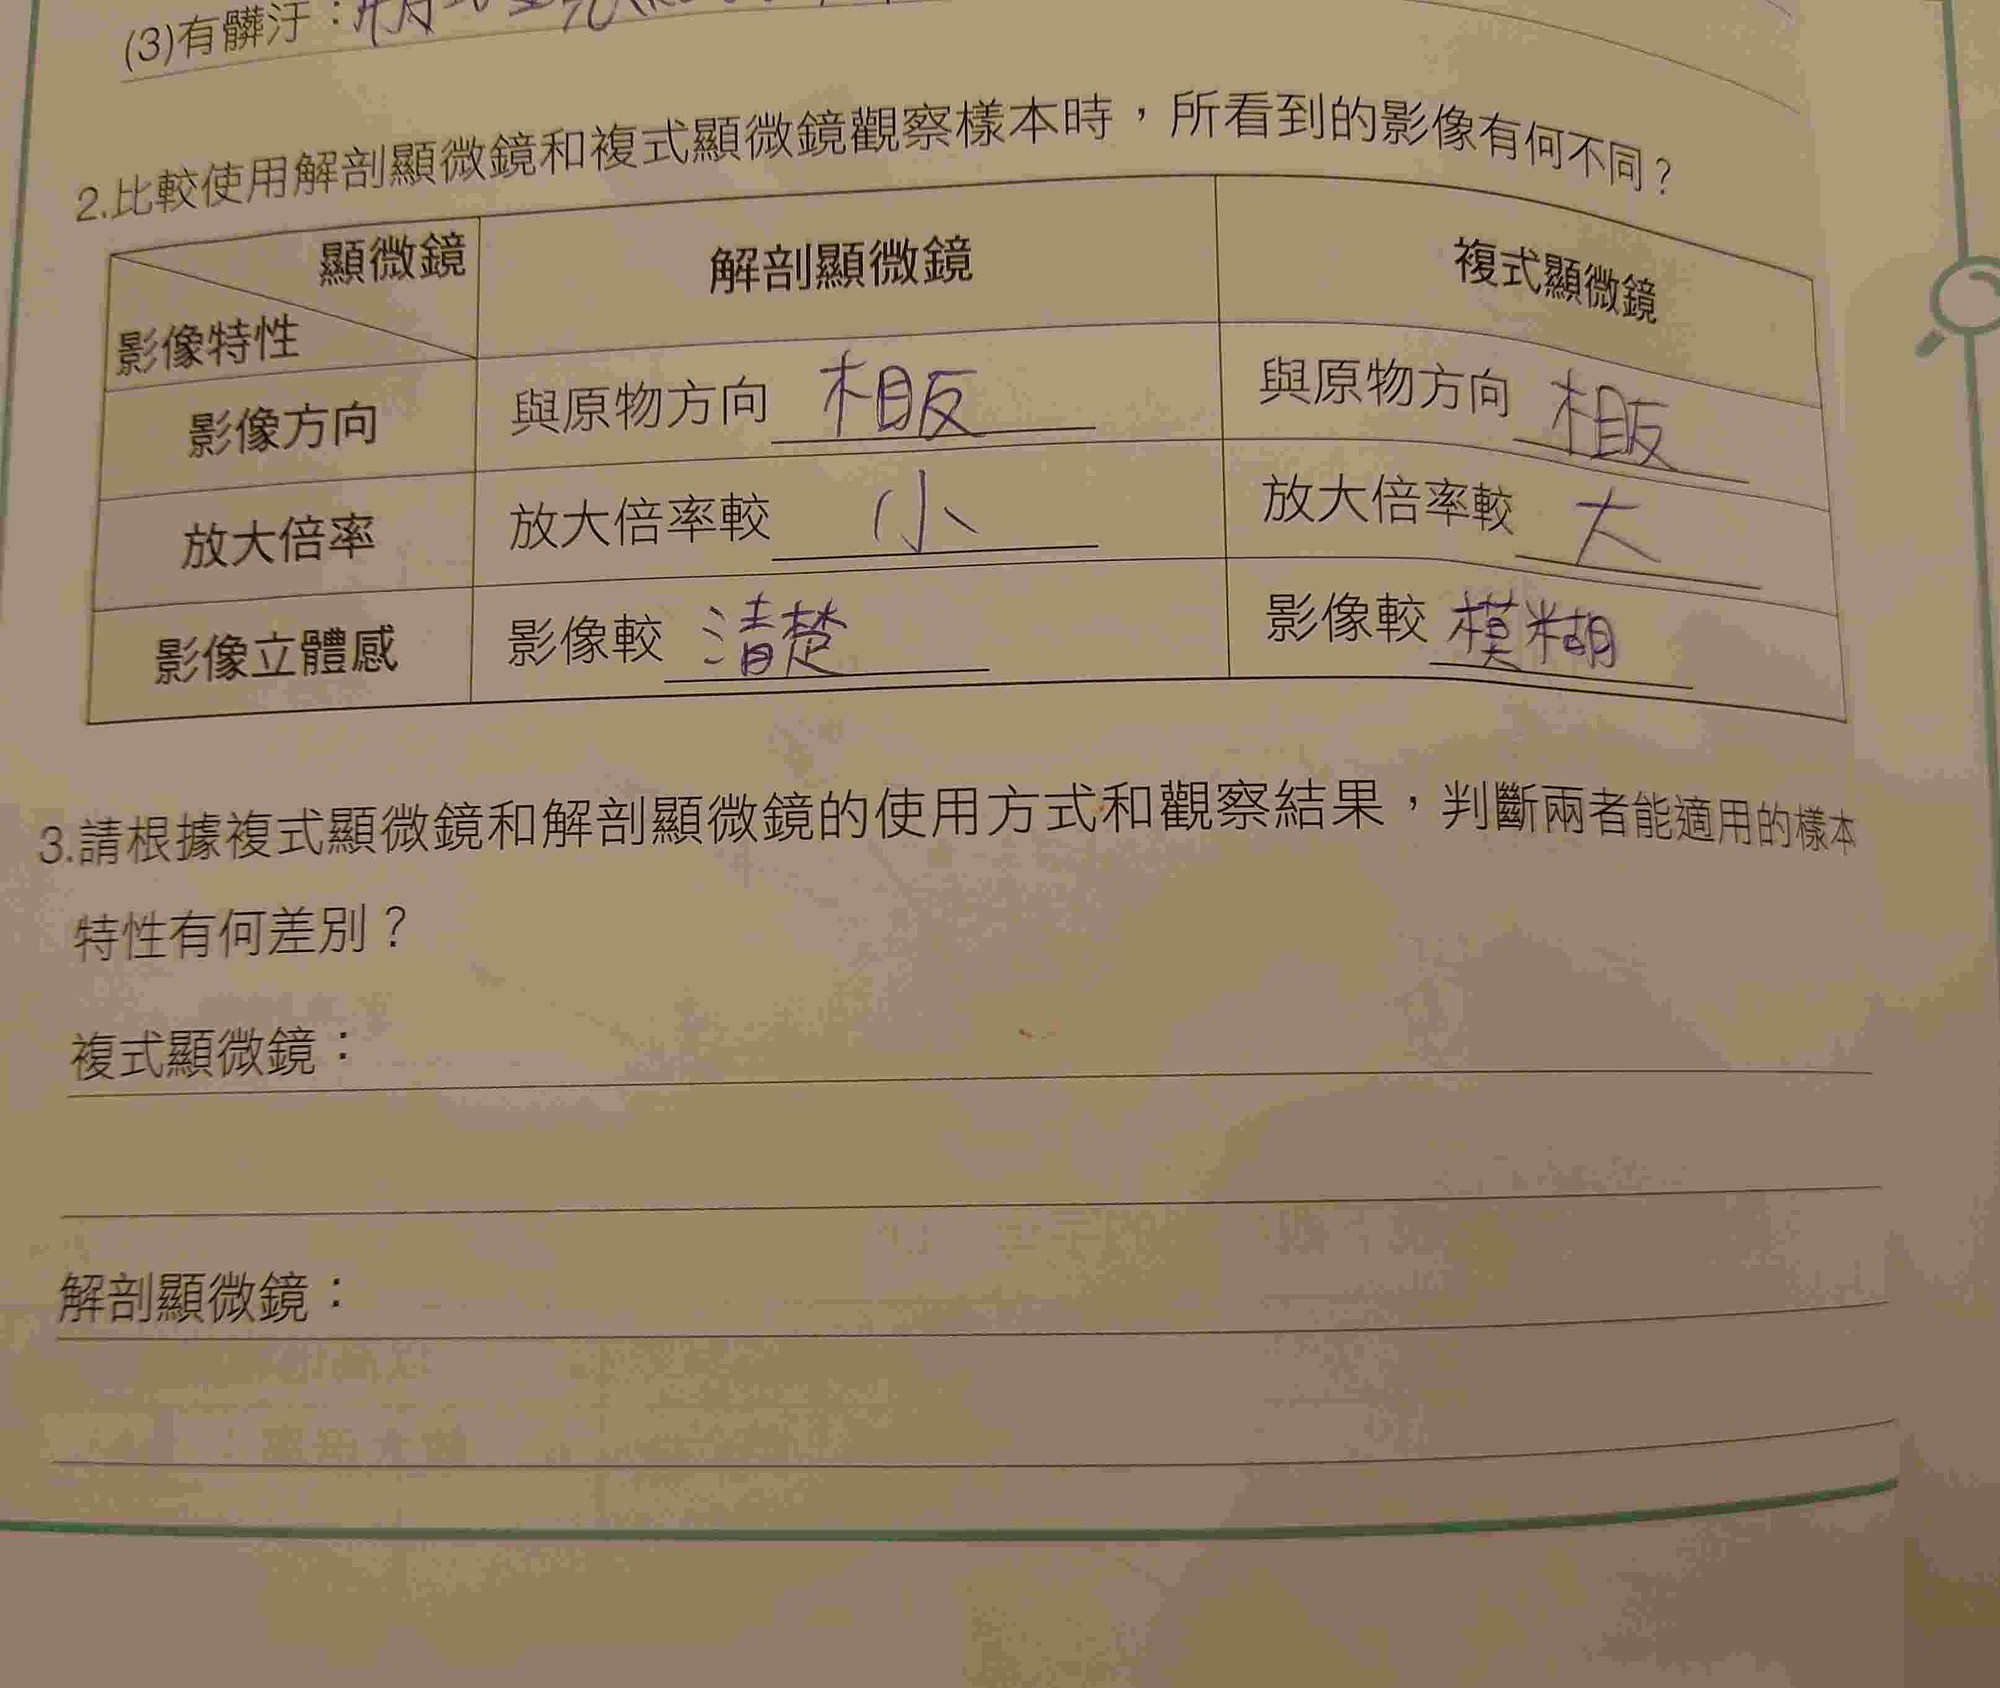 (3)有髒汙：
2.比較使用解剖顯微鏡和複式顯微鏡觀察樣本時，所看到的影像有何不同？
顯微鏡 解剖顯微鏡 複式顯微鏡
影像特性
影像方向 與原物方向 相反 與原物方向 相反
放大倍率 放大倍率較 小 放大倍率較 大
影像立體感 影像較 清楚 影像較 模糊
3.請根據複式顯微鏡和解剖顯微鏡的使用方式和觀察結果，判斷兩者能適用的樣本
特性有何差別？
複式顯微鏡：
解剖顯微鏡：